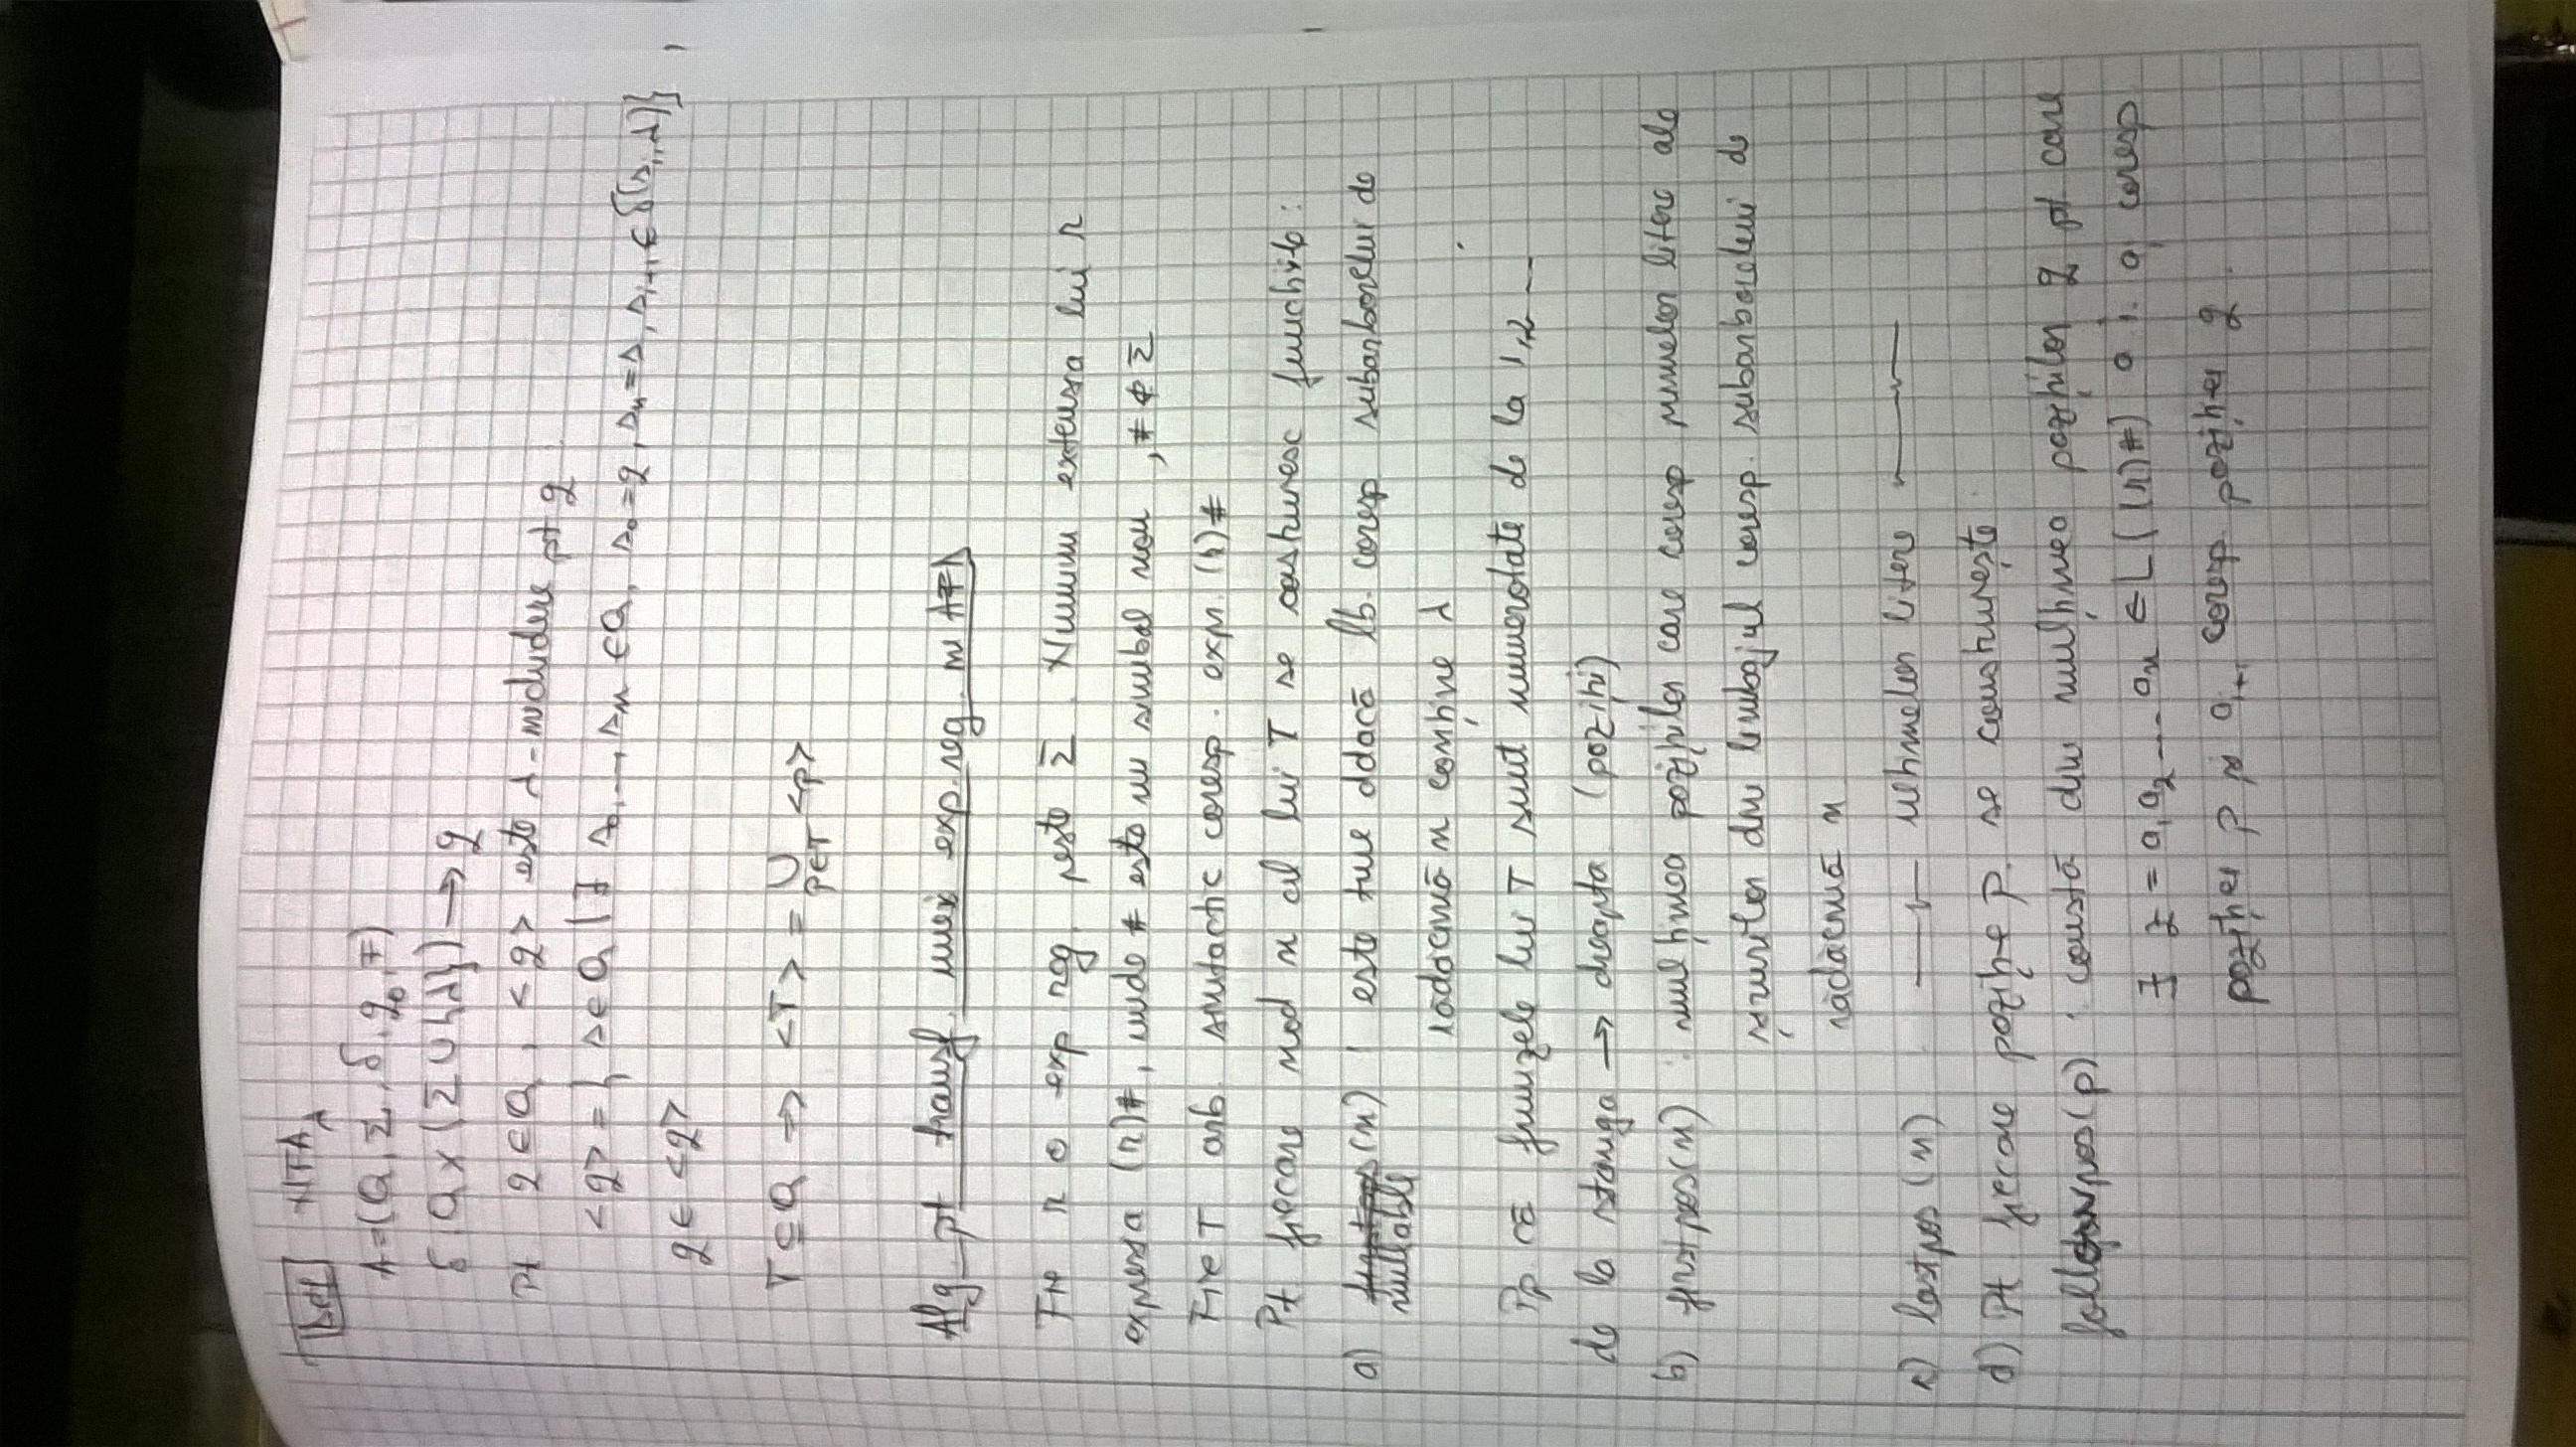 Def NFA λ
A=(Q, Σ, δ, q₀, F)
δ: Q × (Σ ∪ {λ}) → q
Pt q ∈ Q, <q> este λ-închidere pt q:
<q> = { s ∈ Q | ∃ s₀, ..., sₙ ∈ Q, s₀ = q, sₙ = s, sᵢ₊₁ ∈ δ(sᵢ, λ)},
q ∈ <q>
T ⊆ Q ⇒ <T> = ∪ <p>
p∈T
Alg. pt transf. unei exp. reg. în AFD
Fie r o exp reg. peste Σ. Numim extensia lui r
expresia (r)#, unde # este un simbol nou, # ∉ Σ
Fie T arb. sintactic coresp. expr. (r)#
Pt fiecare nod n al lui T se construiesc funcțiile:
a) firstpos(n) : este true ddacă lb. coresp subarborelui de
nullable
rădăcină n conține λ
Pp. că frunzele lui T sunt numerotate de la 1,2 ...
de la stânga → dreapta (poziții)
b) firstpos(n) : mulțimea pozițiilor care coresp primelor litere ale
șirurilor din limbajul coresp. subarborelui de
rădăcină n
c) lastpos(n) —"— ultimelor litere —"—
d) Pt fiecare poziție p. se construiește
followpos(p) : constă din mulțimea pozițiilor q pt. care
∃ z = a₁a₂ ... aₙ ∈ L((r)#) a.î. aᵢ coresp
poziției p și aᵢ₊₁ coresp poziției q.